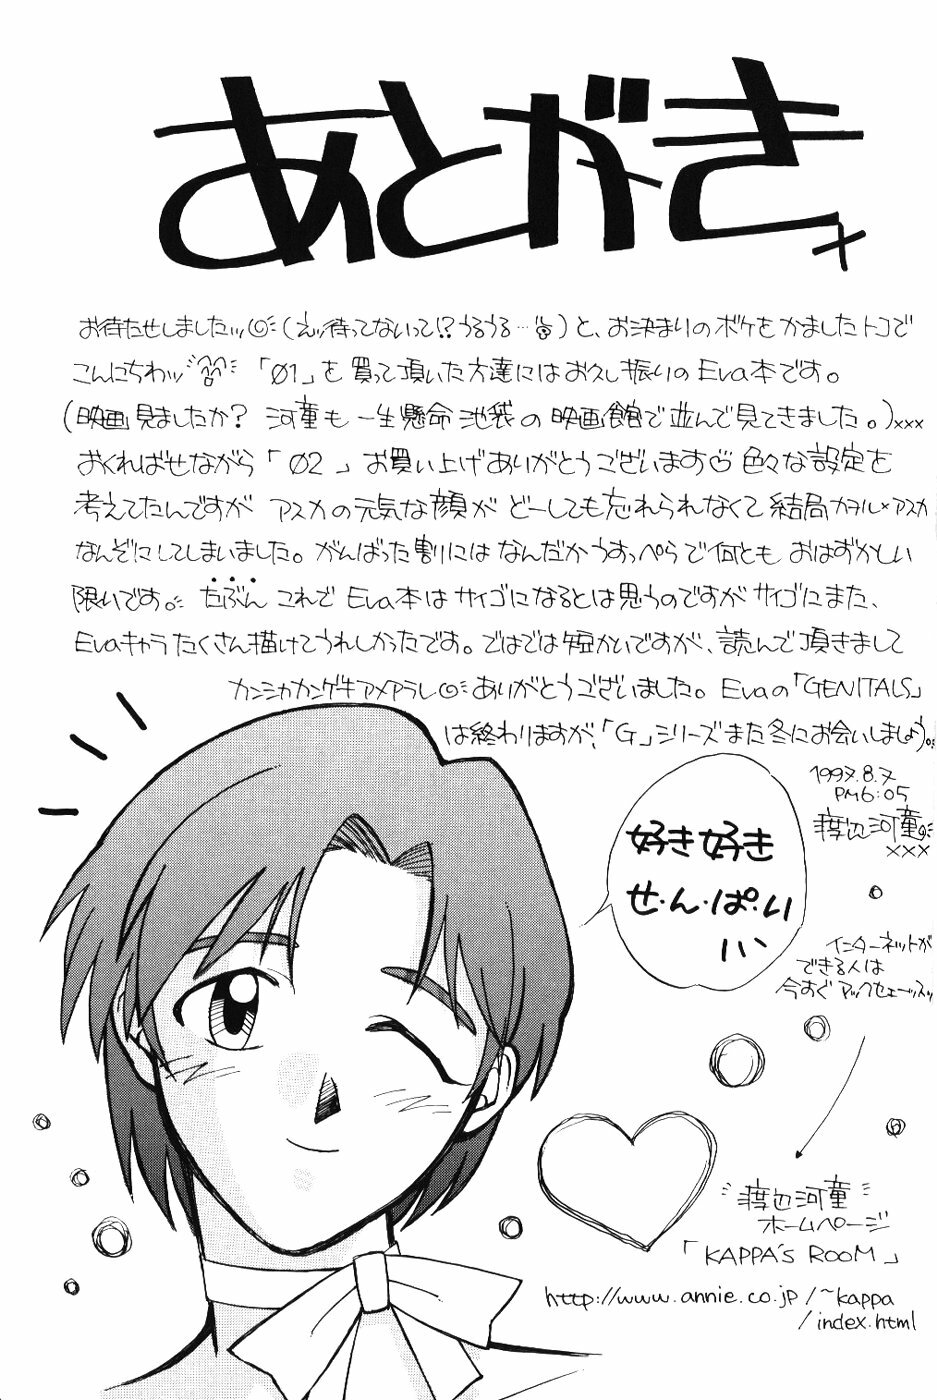 あとがき
お待たせしましたッ(えッ待ってないって!?うるうる…)と、お決まりのボケをかましたトコで
こんにちわッ「01」を買って頂いた方達にはお久し振りのEva本です。
(映画見ましたか? 河童も一生懸命池袋の映画館で並んで見てきました。)×××
おくればせながら「02」お買い上げありがとうございます 色々な設定を
考えてたんですが アスカの元気な顔が どーしても忘れられなくて 結局カヲル×アスカ
なんぞにしてしまいました。がんばった割りにはなんだかうすっぺらで何とも おはずかしい
限りです。たぶん これで Eva本はサイゴになるとは思うのですがサイゴにまた、
Evaキャラたくさん描けてうれしかったです。ではでは短かいですが、読んで頂きまして
カンシャカンゲキアメアラレ ありがとうございました。Evaの「GENITALS」
は終わりますが、「G」シリーズまた冬にお会いしましょう。
1997.8.7
PM6:05
渡辺河童
×××
好き好き
せ・ん・ぱ・い
インターネットが
できる人は
今すぐ アックセェーッスッ
渡辺河童
ホームページ
「KAPPA'S ROOM」
http://www.annie.co.jp/~kappa
/index.html